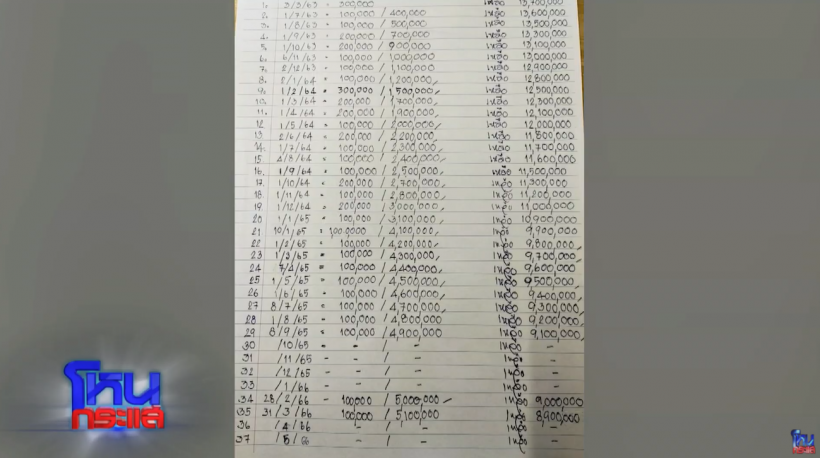 1. 3/3/63 - 300,000 เหลือ 13,700,000
2. 1/7/63 = 100,000 / 400,000 เหลือ 13,600,000
3. 1/8/63 = 100,000 / 500,000 เหลือ 13,500,000
4. 1/9/63 = 200,000 / 700,000 เหลือ 13,300,000
5. 1/10/63 = 200,000 / 900,000 เหลือ 13,100,000
6. 6/11/63 = 100,000 / 1,000,000 เหลือ 13,000,000
7. 2/12/63 = 100,000 / 1,100,000 เหลือ 12,900,000
8. 2/1/64 = 100,000 / 1,200,000 เหลือ 12,800,000
9. 1/2/64 = 300,000 / 1,500,000 เหลือ 12,500,000
10. 1/3/64 = 200,000 / 1,700,000 เหลือ 12,300,000
11. 1/4/64 = 200,000 / 1,900,000 เหลือ 12,100,000
12 1/5/64 = 100,000 / 2,000,000 เหลือ 12,000,000
13 2/6/64 = 200,000 / 2,200,000 เหลือ 11,800,000
14. 1/7/64 = 100,000 / 2,300,000 เหลือ 11,700,000
15 4/8/64 = 100,000 / 2,400,000 เหลือ 11,600,000
16. 1/9/64 = 100,000 / 2,500,000 เหลือ 11,500,000
17. 1/10/64 = 200,000 / 2,700,000 เหลือ 11,300,000
18 1/11/64 = 100,000 / 2,800,000 เหลือ 11,200,000
19 1/12/64 = 200,000 / 3,000,000 เหลือ 11,000,000
20 1/1/65 = 100,000 / 3,100,000 เหลือ 10,900,000
21 10/1/65 = 1,000,000 / 4,100,000 เหลือ 9,900,000
22 1/2/65 = 100,000 / 4,200,000 เหลือ 9,800,000
23 1/3/65 = 100,000 / 4,300,000 เหลือ 9,700,000
24 7/4/65 = 100,000 / 4,400,000 เหลือ 9,600,000
25 1/5/65 = 100,000 / 4,500,000 เหลือ 9,500,000
26 1/6/65 = 100,000 / 4,600,000 เหลือ 9,400,000
27 8/7/65 = 100,000 / 4,700,000 เหลือ 9,300,000
28 1/8/65 = 100,000 / 4,800,000 เหลือ 9,200,000
29 8/9/65 = 100,000 / 4,900,000 เหลือ 9,100,000
30 /10/65 = - / - เหลือ -
31 /11/65 - - / - เหลือ -
32 /12/65 - - / - เหลือ -
33 /1/66 - - / - เหลือ -
34 28/2/66 - 100,000 / 5,000,000 เหลือ 9,000,000
35 31/3/66 100,000 / 5,100,000 เหลือ 8,900,000
36 /4/66 - / - เหลือ -
37 /5/66 - / - เหลือ -
โหนกระแส
โหนกระแส